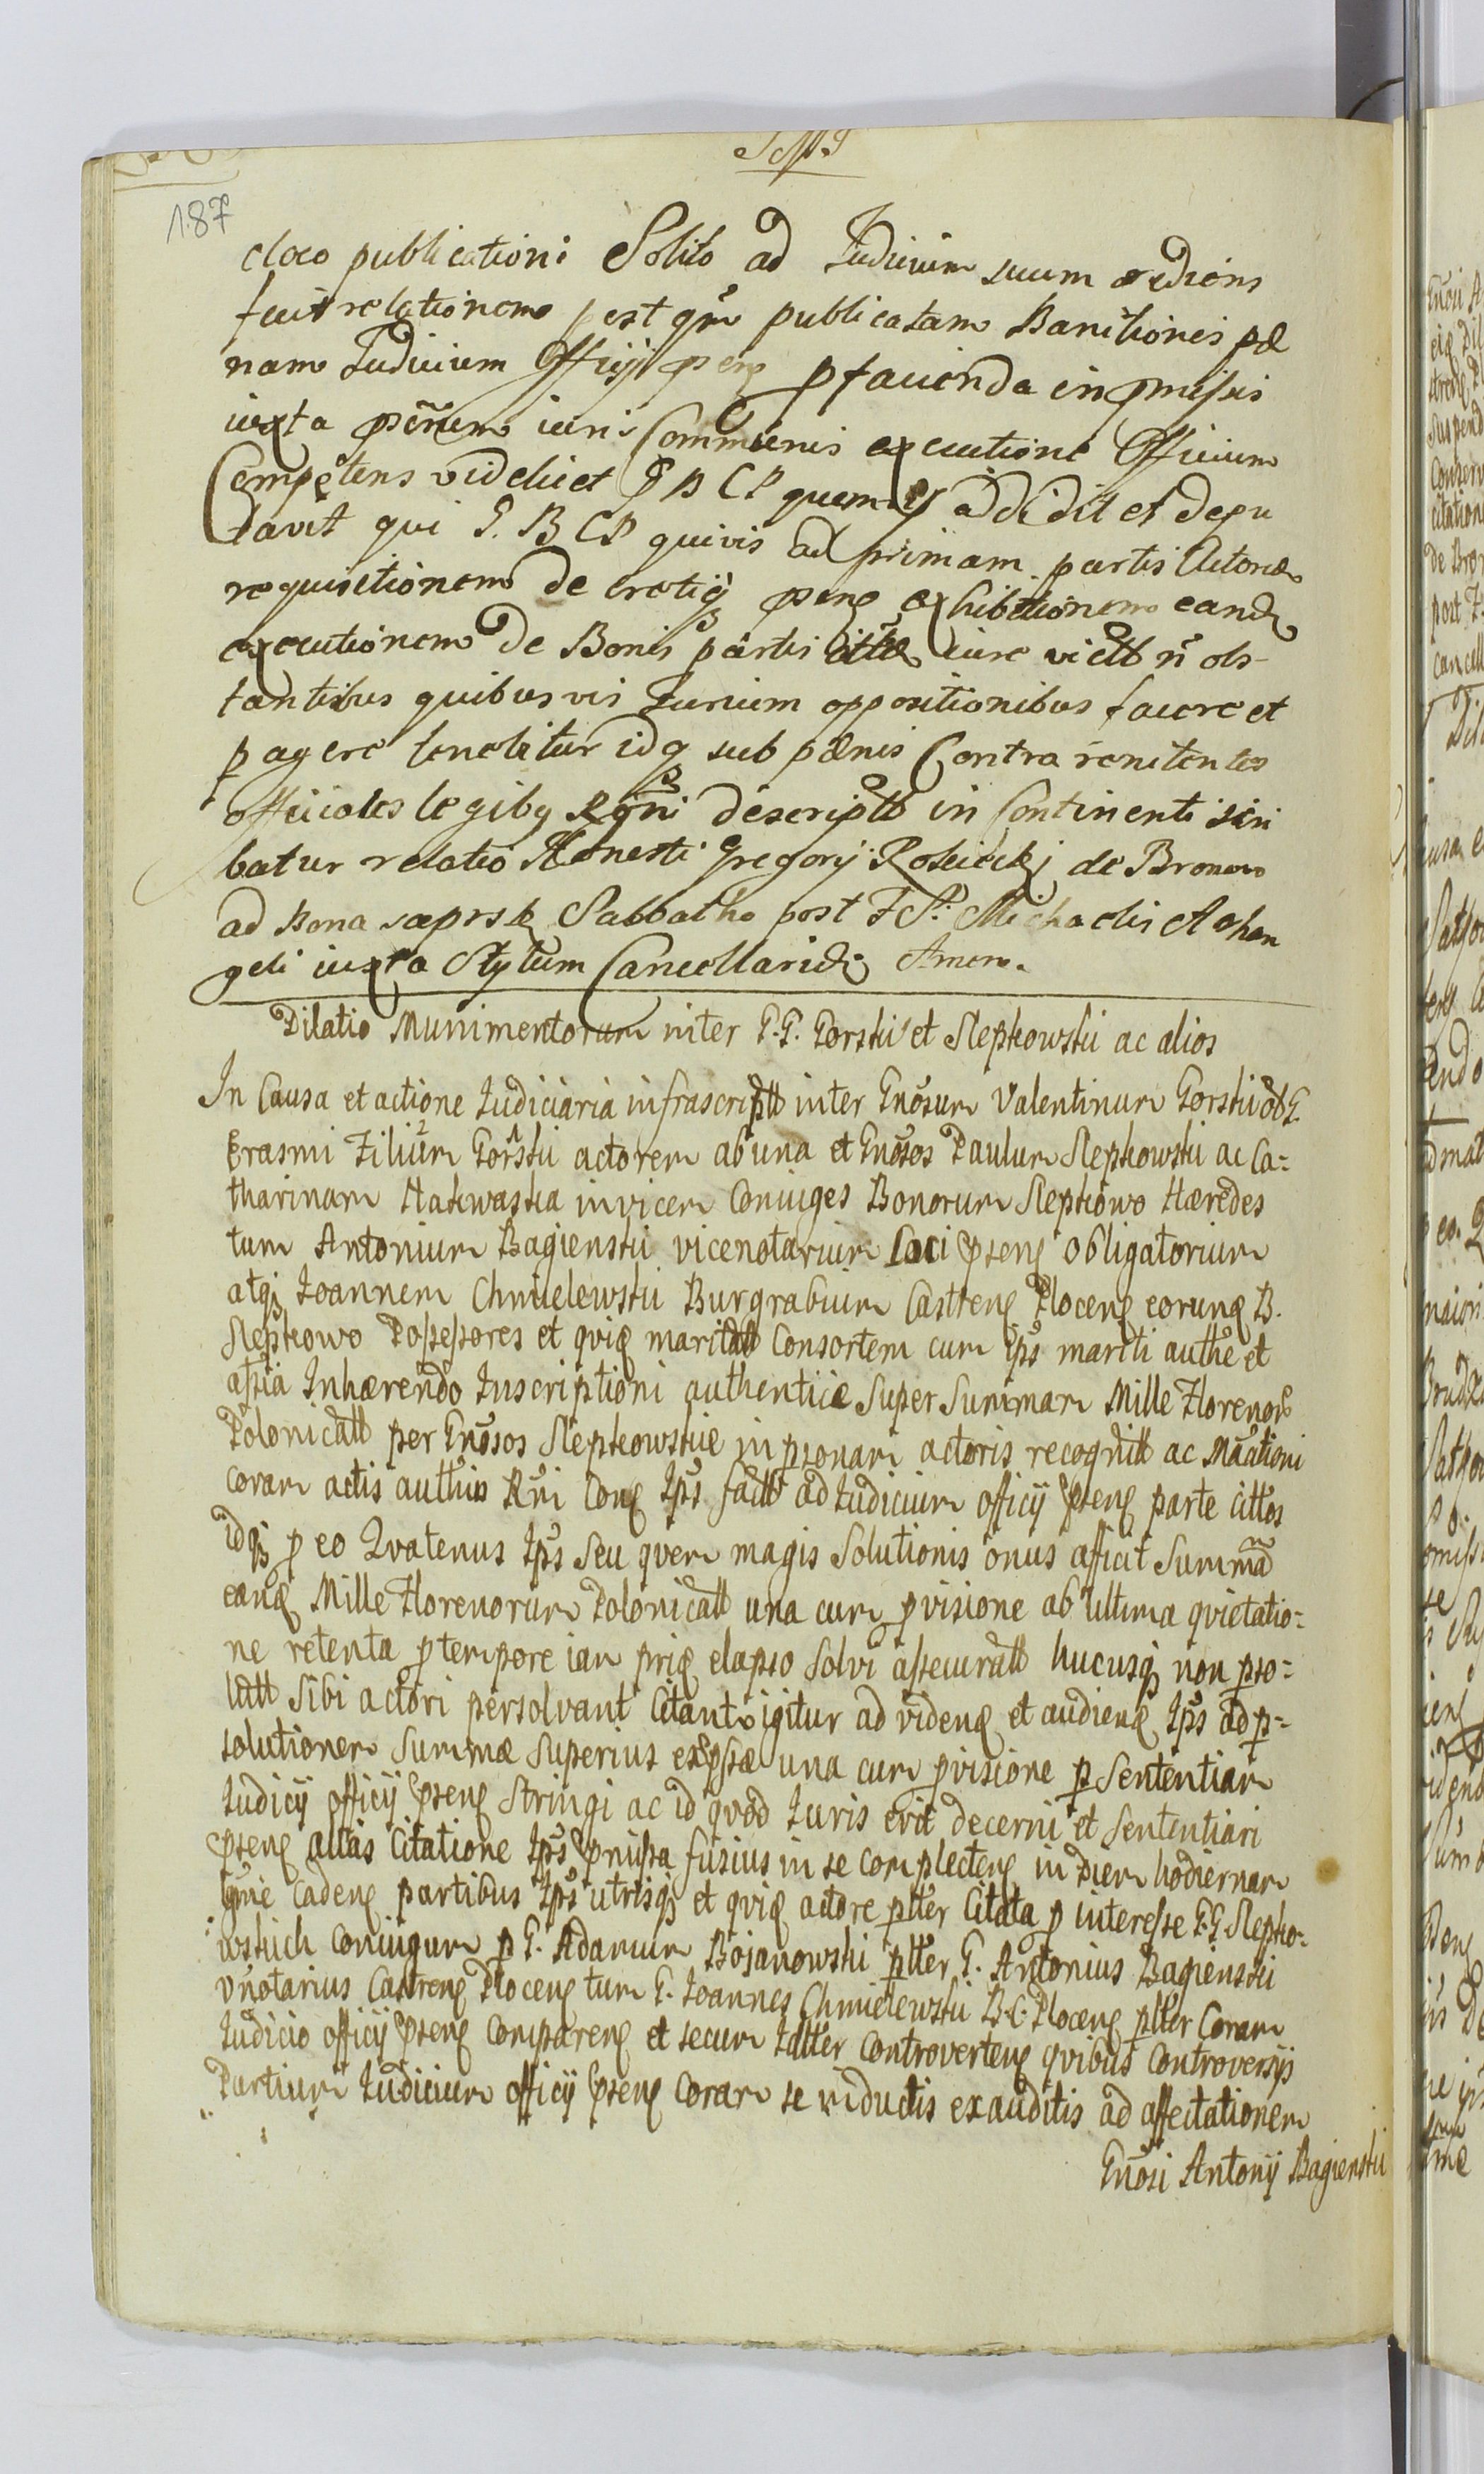 187
cloco publicationi Solito ad Judicium suum rediens
fecit relationem post qm̃ publicatam Banitionis pæ
nam Judicium Officij psens p facienda in pmissis
iuxta psẽrum iuris Communis executione Officium
Competens videlicet G B C P quemqz addidit et depu
tavit qui G. B C P quivis ad primam partis Actoreæ
requisitionem de cretiqz psens exhibitionem eand
executionem De Bonis partis Citttæ iure victtt ñ obs-
tantibus quibusvis Jurium oppositionibus facere et
pagere tenebitur idqz sub pænis Contra renitentes
officiales legibq Rgni descripttt in Continenti scri
batur relatio Honesti Gregorij Rościecki de Bronowo
ad Bona saprsk Sabbatho post F St. Michaelis Achan
geli iuxta Stylum Cancellarieæ Amen.
Dilatio Munimentorum inter G.G. Gorskii et Slepkowskii ac alios
In Causa et actione Judiciaria infrascripttt inter Gnõsum Valentinum Gorskii ol G.
Erasmi Filium Gorskii actorem ab una et Gnõsos Paulum Slepkowskii ac Ca=
tharinam Nakwaska invicem Coniuges Bonorum Slepkowo Hæredes
tum Antonium Bagienskii vicenotarium Loci psens obligatorium
atqz Joannem Chmielewskii Burgrabium Castrens Plocens eorund B.
Slepkowo Possessores et qviq maritttt Consortem cum Ips mariti authe et
assia Inhærendo Inscriptioni authenticæ super Summam Mille Florenor
Polonicattt per Gnõsos Slepkowskie in psonam actoris recognittt ac Mãationi
coram actis authis Rni Cons Ips facttt ad Judicium officij psens parte citttos
idqz p eo Qvatenus Ips seu qvem magis Solutionis onus afficit Summã
eand Mille Florenorum Polonicattt una cum pvisione ab ultima qvietatio=
ne retenta p tempore iam priq elapso solvi assecurattt hucusqz non pso=
luttt sibi actori persolvant Citantr igitur ad vidend et audiend Ips ad p=
solutionem summæ superius expssæ una cum pvisione p Sententiam
Judicij officij psens Stringi ac id qvod Juris erit decerni et Sententiari
psens alias Citatione Ips pmissa fusius in se complectens in Diem hodiernam
lgme cadens partibus Ips utrisqz et qviq actore plter Citata p interesse G.G Slepko=
wskich Coniugum p G. Adamum Bojanowski plter G. Antonius Bagienskii
Vnotarius Castrens Plocens tum G. Joannes Chmielewskii B.C. Plocens plter Coram
Judicio officij psens Comparens et secum Idttter Controvertens qvibus Controversijs
Partium Judicium officij psens Coram se reductis exauditis ad affectationem
Gnõsi Antonij Bagienskii